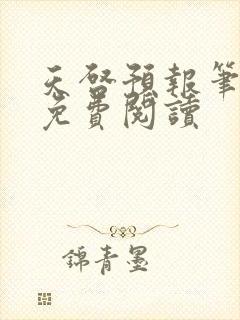 天啓預報筆
免費閱讀
錦青墨